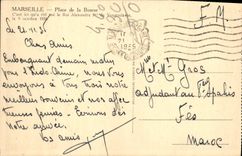 MARSEILLE - Place de la Bourse
C'est ici qu'a été tué le Roi Alexandre
le 9 octobre
le 21.11.35
Chers Amis
Embarquant demain matin
pour l'Indo-Chine, nous vous
envoyons à Tous Trois notre
meilleur souvenir et nos affec
tueuses pensées - Ecrirons dès
notre arrivée.
Vos amis
1935
F.M.
M. et Me Gros
adjudant au Spahis
Fès
Maroc